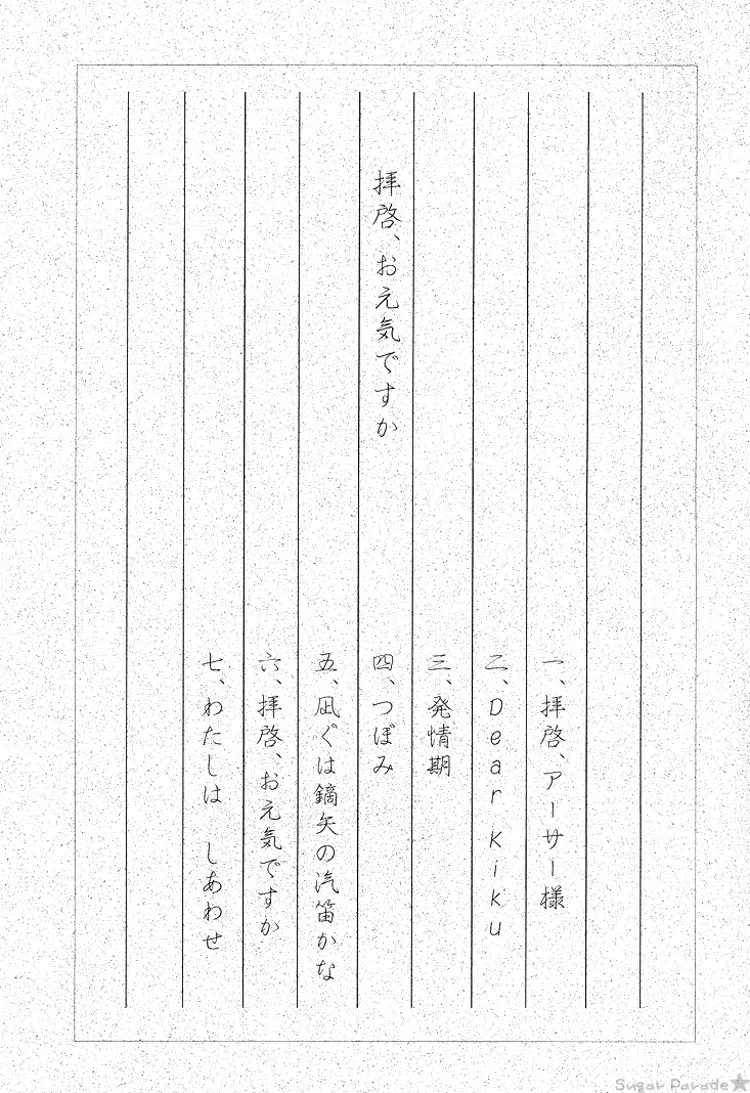 一、拝啓、アーサー様
二、Dear Kiku
三、発情期
拝啓、お元気ですか
四、つぼみ
五、凪ぐは鏑矢の汽笛かな
六、拝啓、お元気ですか
七、わたしは　しあわせ
Sugar Parade★